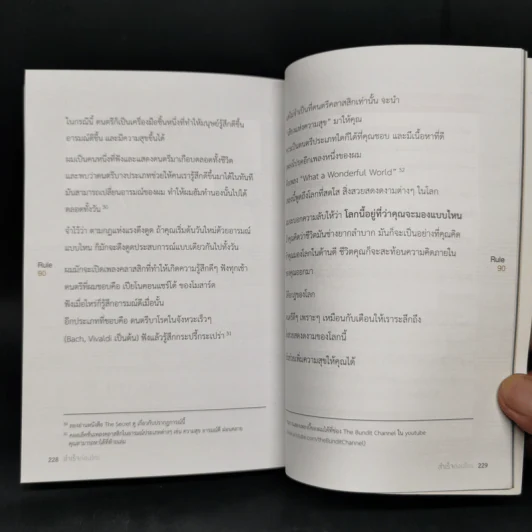 ในกรณีนี้ ดนตรีก็เป็นเครื่องมือชิ้นหนึ่งที่ทำให้มนุษย์รู้สึกดีขึ้น
อารมณ์ดีขึ้น และมีความสุขขึ้นได้
ผมเป็นคนหนึ่งที่ฟังและแสดงดนตรีมาเกือบตลอดทั้งชีวิต
และพบว่าดนตรีบางประเภทช่วยให้คนเรารู้สึกดีขึ้นมาได้ในทันที
มันสามารถเปลี่ยนอารมณ์ของผม ทำให้ผมยิ้มทำนองนั้นไปได้
ตลอดทั้งวัน 30
จำไว้ว่า ตามกฎแห่งแรงดึงดูด ถ้าคุณเริ่มต้นวันใหม่ด้วยอารมณ์
แบบไหน ก็มักจะดึงดูดประสบการณ์แบบเดียวกันไปทั้งวัน
ผมมักจะเปิดเพลงคลาสสิกที่ทำให้เกิดความรู้สึกดีๆ ฟังทุกเช้า
ดนตรีที่ผมชอบคือ เปียโนคอนแชร์โต้ ของโมสาร์ต
ฟังเมื่อไหร่ก็รู้สึกอารมณ์ดีเมื่อนั้น
อีกประเภทที่ชอบคือ ดนตรีบาโรคในจังหวะเร็วๆ
(Bach, Vivaldi เป็นต้น) ฟังแล้วรู้สึกกระปรี้กระเปร่า 31
Rule
90
30 ลองอ่านหนังสือ The Secret ดู เกี่ยวกับปรากฏการณ์นี้
228
จำเป็นที่ดนตรีคลาสสิกเท่านั้น จะนำ
แห่งความสุข" มาให้คุณ
เป็นดนตรีประเภทใดก็ได้ที่คุณชอบ และมีเนื้อหาที่ดี
อีกเพลงหนึ่งของผม
"What a Wonderful World" 32
พูดถึงโลกที่สดใส สิ่งสวยสดงดงามต่างๆ ในโลก
บอกความลับให้ว่า โลกนี้อยู่ที่ว่าคุณจะมองแบบไหน
คิดว่าชีวิตมันช่างยากลำบาก มันก็จะเป็นอย่างที่คุณคิด
มองโลกในด้านดี ชีวิตคุณก็จะสะท้อนความคิดภายใน
คุณออกมา
ของโลก
ดีๆ เพราะๆ เหมือนกับเตือนให้เราระลึกถึง
งดงามของโลกนี้
เพิ่มความสุขให้คุณได้
Rule
90
The Bundit Channel ใน youtube
229